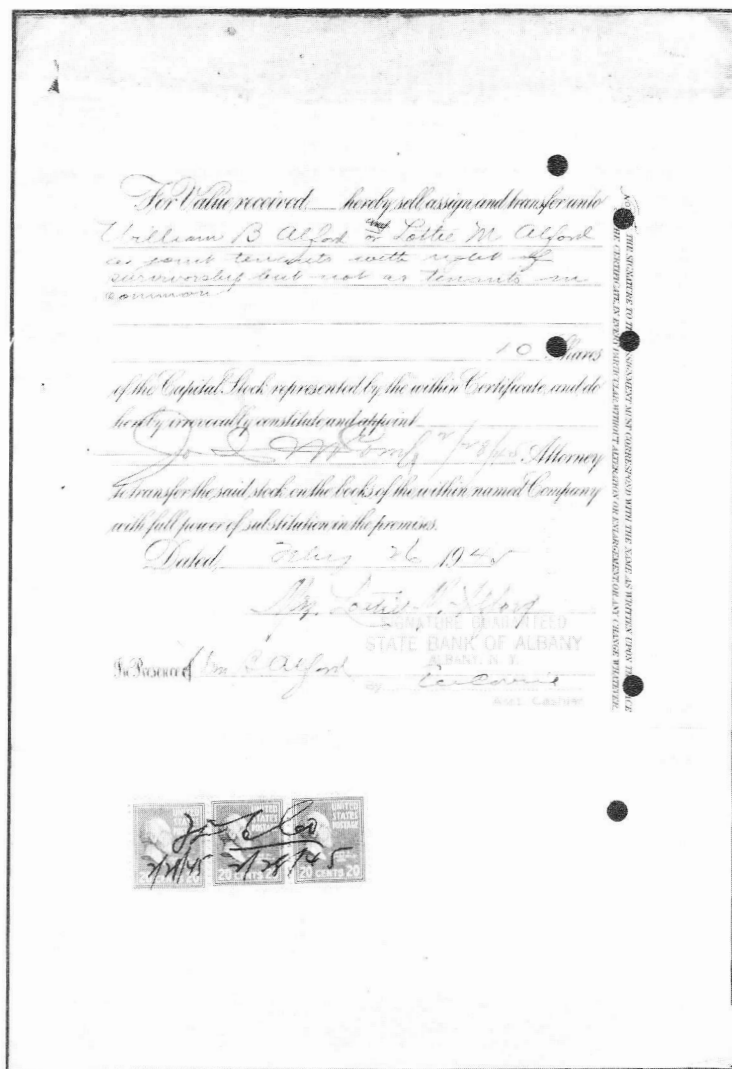 For Value received ___ hereby sell assign and transfer unto
William B Alford or Lottie M Alford
as joint tenants with right of
survivorship but not as tenants in
common
10 Shares
of the Capital Stock represented by the within Certificate, and do
hereby irrevocably constitute and appoint
2/28/45 Attorney
to transfer the said stock on the books of the within named Company
with full power of substitution in the premises.
Dated 26 1945
Mrs. Lottie Alford
SIGNATURE GUARANTEED
STATE BANK OF ALBANY
ALBANY, N. Y.
In Presence of Wm B. Alford
BY
Asst. Cashier
THE SIGNATURE TO THIS ASSIGNMENT MUST CORRESPOND WITH THE NAME AS WRITTEN UPON THE FACE
THE CERTIFICATE, IN EVERY PARTICULAR, WITHOUT ALTERATION OR ENLARGEMENT, OR ANY CHANGE WHATEVER.
UNITED STATES POSTAGE
UNITED STATES POSTAGE
2/28/45 2/28/45
20 CENTS 20 20 CENTS 20 20 CENTS 20